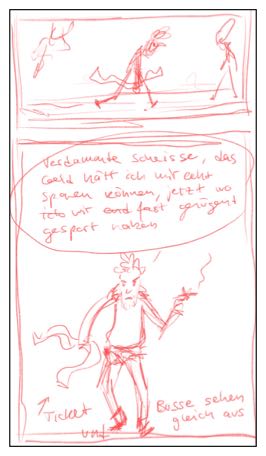 Verdammte scheisse, das
Geld hätt ich mir echt
sparen können, jetzt wo
ich mir fast genügend
gespart haben
↑
Ticket
und
Busse sehen
gleich aus